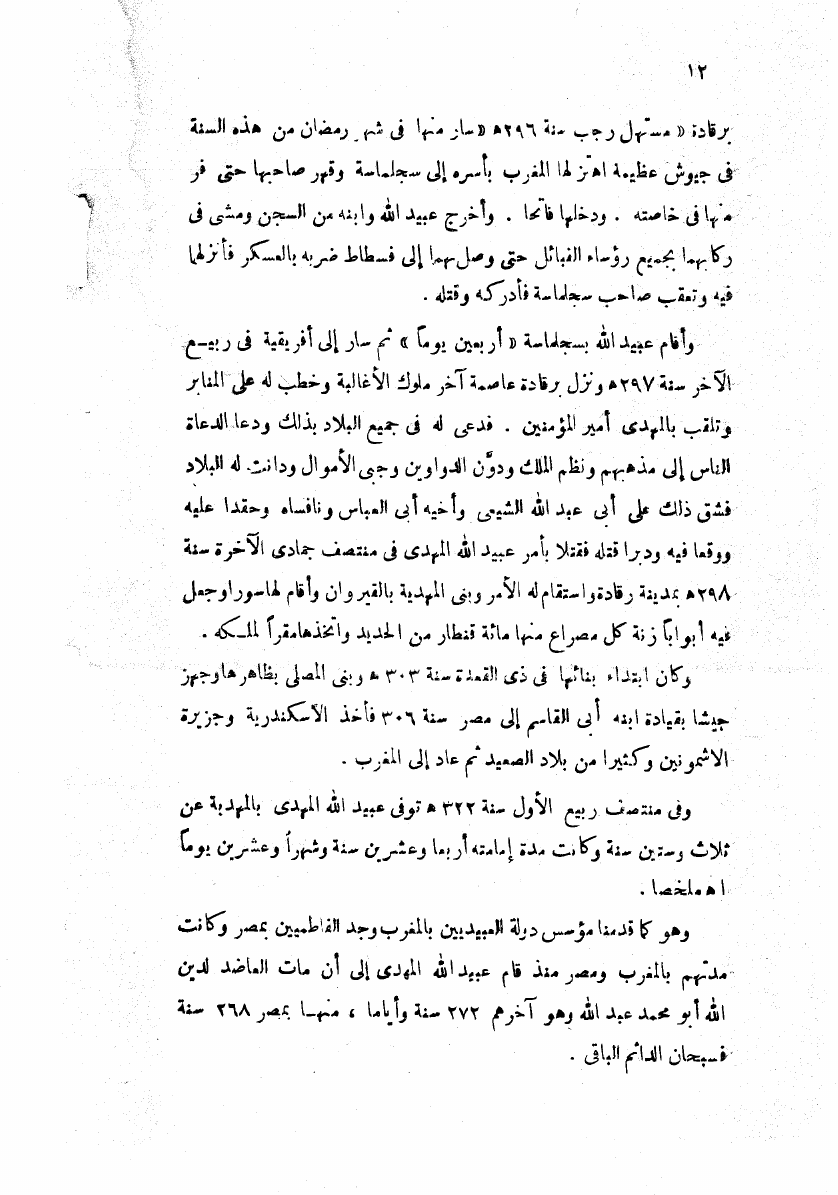 ١٢
برقادة « مستهل رجب سنة ٢٩٦ﻫ «سار منها فى شهر رمضان من هذه السنة
فى جيوش عظيمة اهتز لها المغرب بأسره إلى سجلماسة وقهر صاحبها حتى فر
منها فى خاصته . ودخلها فاتحا . وأخرج عبيد الله وابنه من السجن ومشى فى
ركابهما بجميع رؤساء القبائل حتى وصل بهما إلى فسطاط ضربه بالعسكر فأنزلهما
فيه وتعقب صاحب سجلماسة فأدركه وقتله .
وأقام عبيد الله بسجلماسة « أربعين يوماً » ثم سار إلى أفريقية فى ربيع
الآخر سنة ٢٩٧ﻫ ونزل برقادة عاصمة آخر ملوك الأغالبة وخطب له على المنابر
وتلقب بالمهدى أمير المؤمنين . فدعى له فى جميع البلاد بذلك ودعا الدعاة
الناس إلى مذهبهم ونظم الملك ودوَّن الدواوين وجبى الأموال ودانت له البلاد
فشق ذلك على أبى عبد الله الشيعى وأخيه أبى العباس ونافساه وحقدا عليه
ووقعا فيه ودبرا قتله فقتلا بأمر عبيد الله المهدى فى منتصف جمادى الآخرة سنة
٢٩٨ﻫ بمدينة رقادة واستقام له الأمر وبنى المهدية بالقيروان وأقام لها سورا وجعل
فيه أبواباً زنة كل مصراع منها مائة قنطار من الحديد واتخذها مقراً لملكه .
وكان ابتداء بنائها فى ذى القعدة سنة ٣٠٣ ﻫ وبنى المصلى بظاهرها وجهز
جيشا بقيادة ابنه أبى القاسم إلى مصر سنة ٣٠٦ فأخذ الآسكندرية وجزيرة
الاشمونين وكثيرا من بلاد الصعيد ثم عاد إلى المغرب .
وفى منتصف ربيع الأول سنة ٣٢٢ ﻫ توفى عبيد الله المهدى بالمهدية عن
ثلاث وستين سنة وكانت مدة إمامته أربعا وعشرين سنة وشهراً وعشرين يوماً
اﻫ ملخصا .
وهو كما قدمنا مؤسس دولة العبيديين بالمغرب وجد الفاطميين بمصر وكانت
مدتهم بالمغرب ومصر منذ قام عبيد الله المهدى إلى أن مات العاضد لدين
الله أبو محمد عبد الله وهو آخرهم ٢٧٢ سنة وأياما ، منها بمصر ٢٦٨ سنة
فسبحان الدائم الباقى .